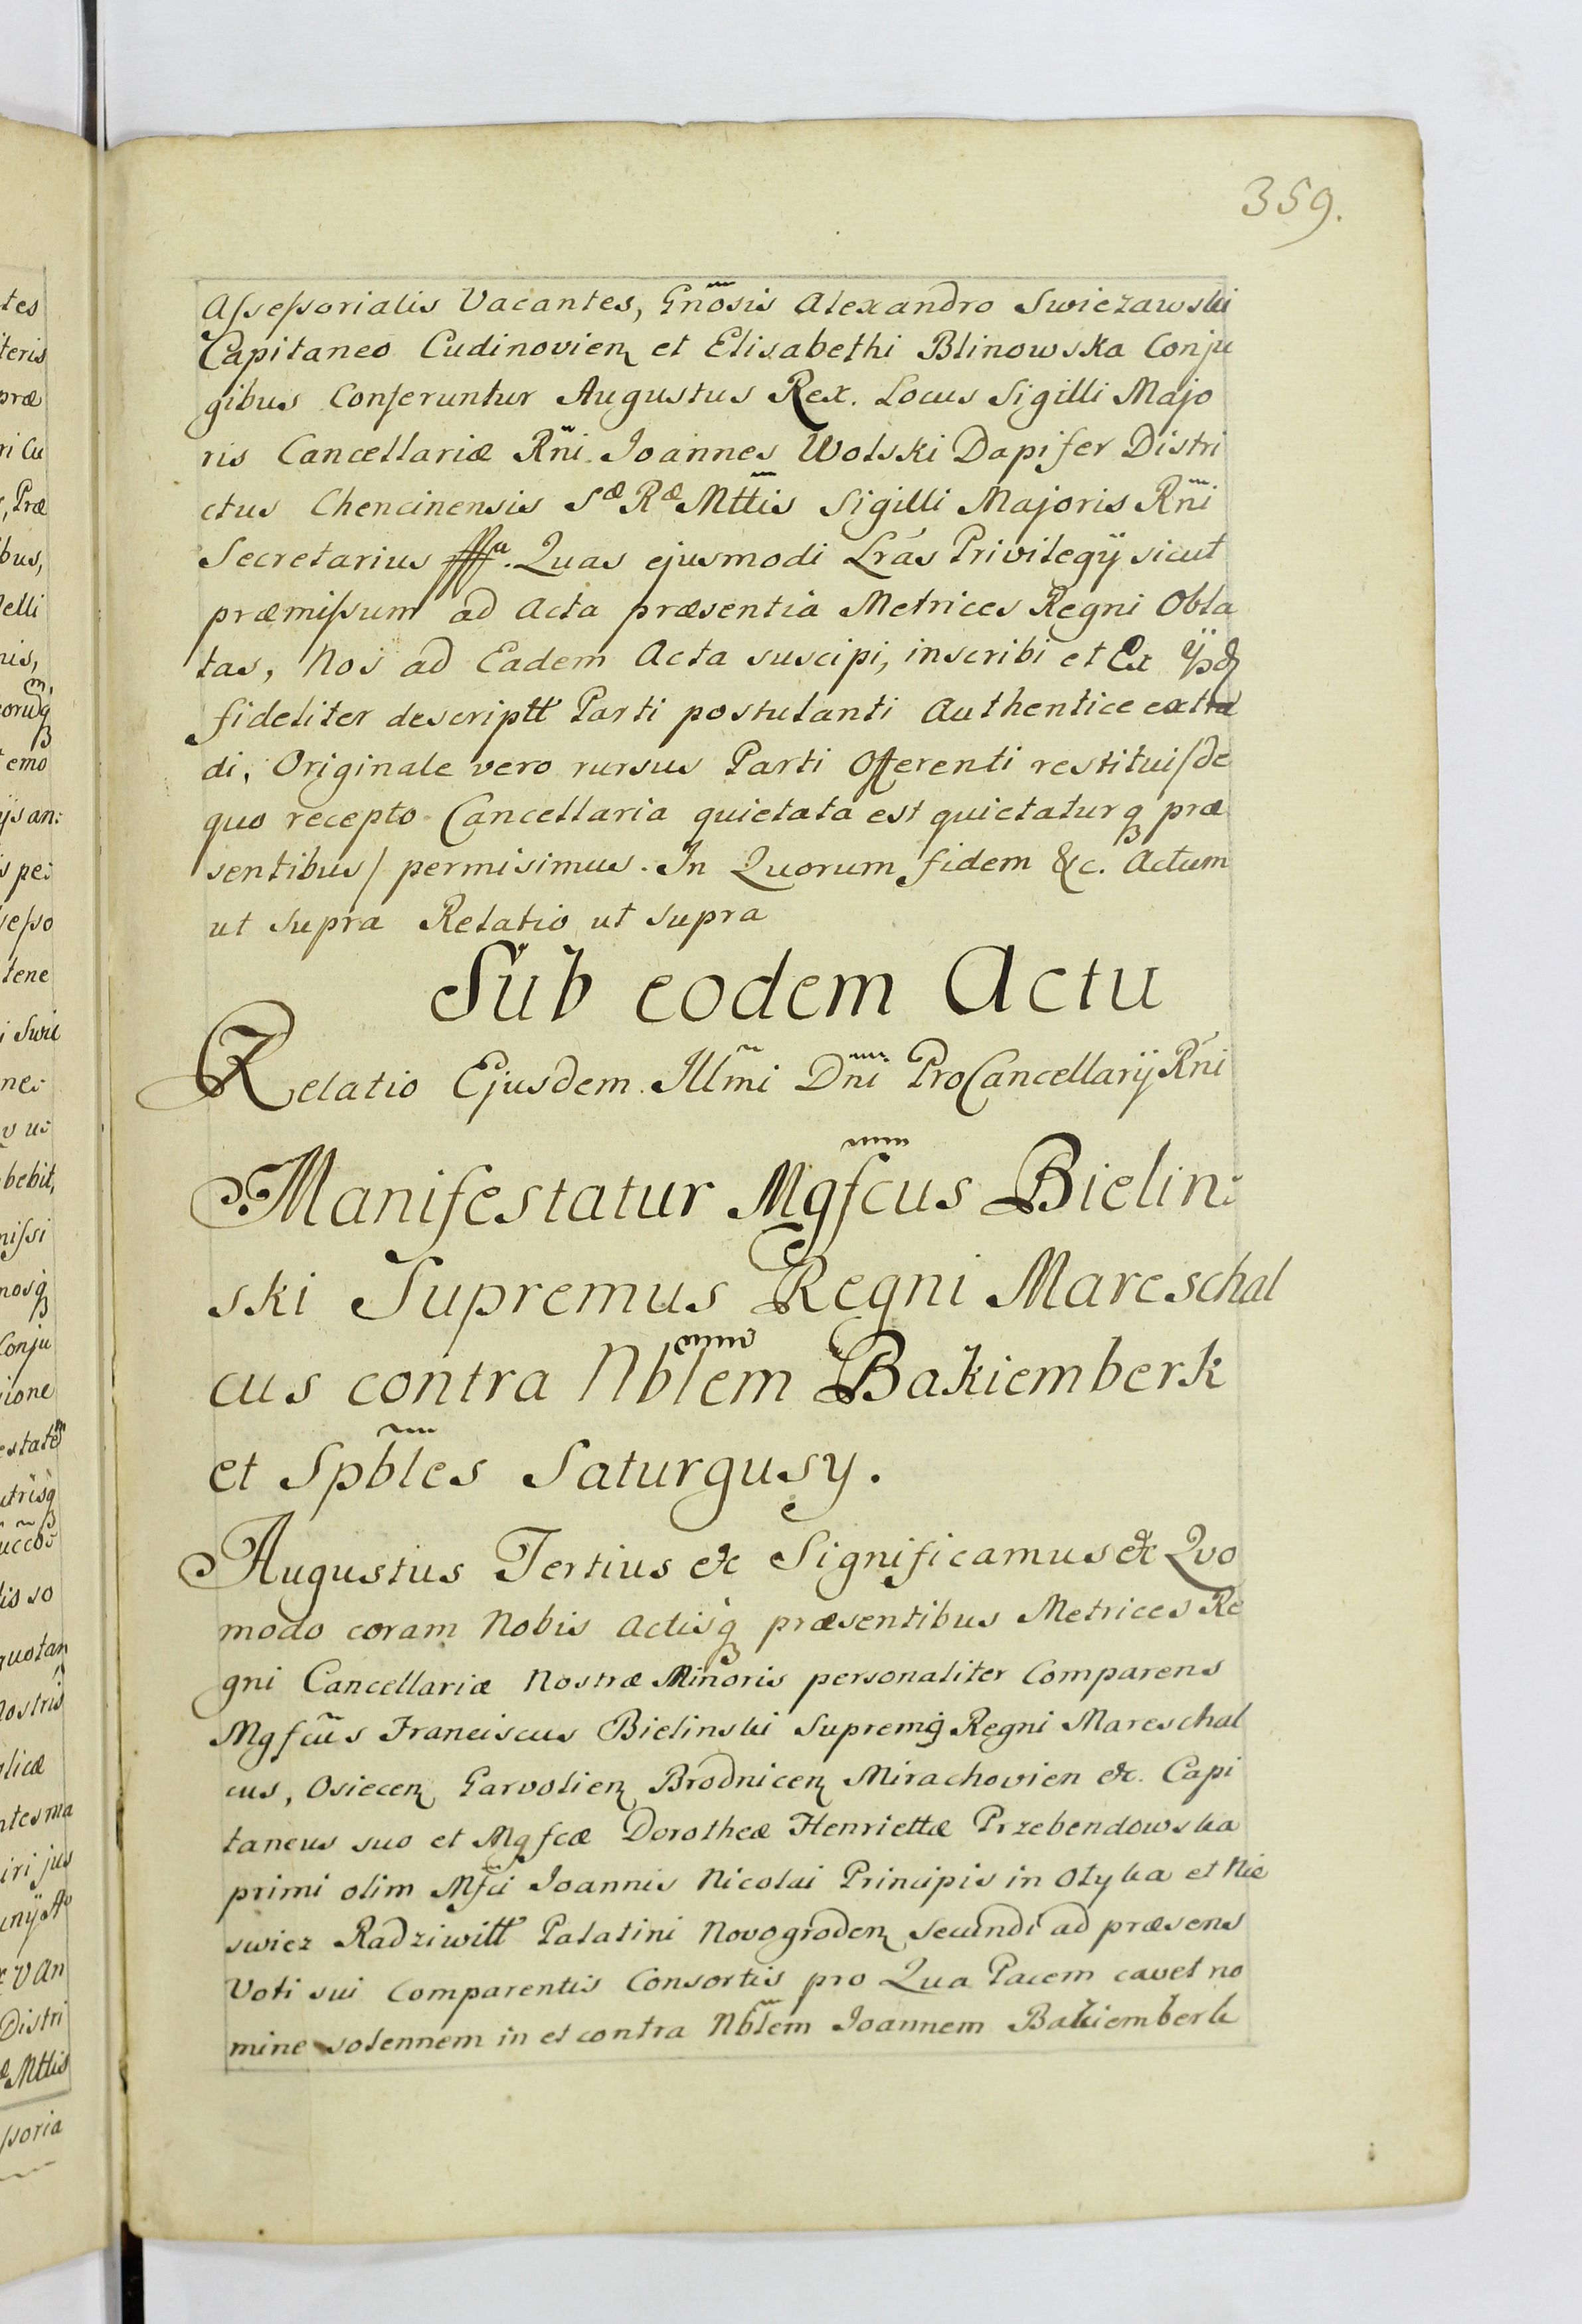 359.
Assessorialis Vacantes, Gnõsis Alexandro Swiezawski
Capitaneo Cudinovien et Elisabethi Blinowska Conju
gibus Conferuntur Augustus Rex. Locus Sigilli Majo
ris Cancellariæ Rñi Joannes Wolski Dapifer Distri
ctus Chencinensis Sæ Ræ Mttis Sigilli Majoris Rñi
Secretarius Quas ejusmodi Lrás Privilegij sicut
præmissum ad Acta præsentia Metrices Regni Obla
tas, Nos ad Eadem Acta suscipi, inscribi et Ex
fideliter descriptt Parti postulanti Authentice extra
di, Originale vero rursus Parti Offerenti restitui/de
quo recepto Cancellaria quietata est quietaturq præ
sentibus/ permisimus. In Quorum fidem &c. Actum
ut supra Relatio ut supra
Sub eodem Actu
Relatio Ejusdem Illm̃i Dñi ProCancellarij Rńi
Manifestatur Mgfcus Bielin:
ski Supremus Regni Mareschal
cus contra Nblem Bakiemberk
et Spbles Saturgusy.
Augustus Tertius &c Significamus &c Quo
modo coram Nobis Actisq præsentibus Metrices Re
gni Cancellariæ Nostræ Minoris personaliter Comparens
Mgfcũs Franciscus Bielinski Supremq Regni Mareschal
cus, Osiecen Garvolien Brodnicen Mirachovien &c. Capi
taneus suo et Mgfcæ Dorotheæ Henriettæ Przebendowska
primi olim Mfci Joannis Nicolai Principis in Olyka et Nie
swiez Radziwitt Palatini Novogroden Secundi ad præsens
Voti sui Comparentis Consortis pro Qua Pacem cavet no
mine solennem in et contra Nblem Joannem Bakiemberk